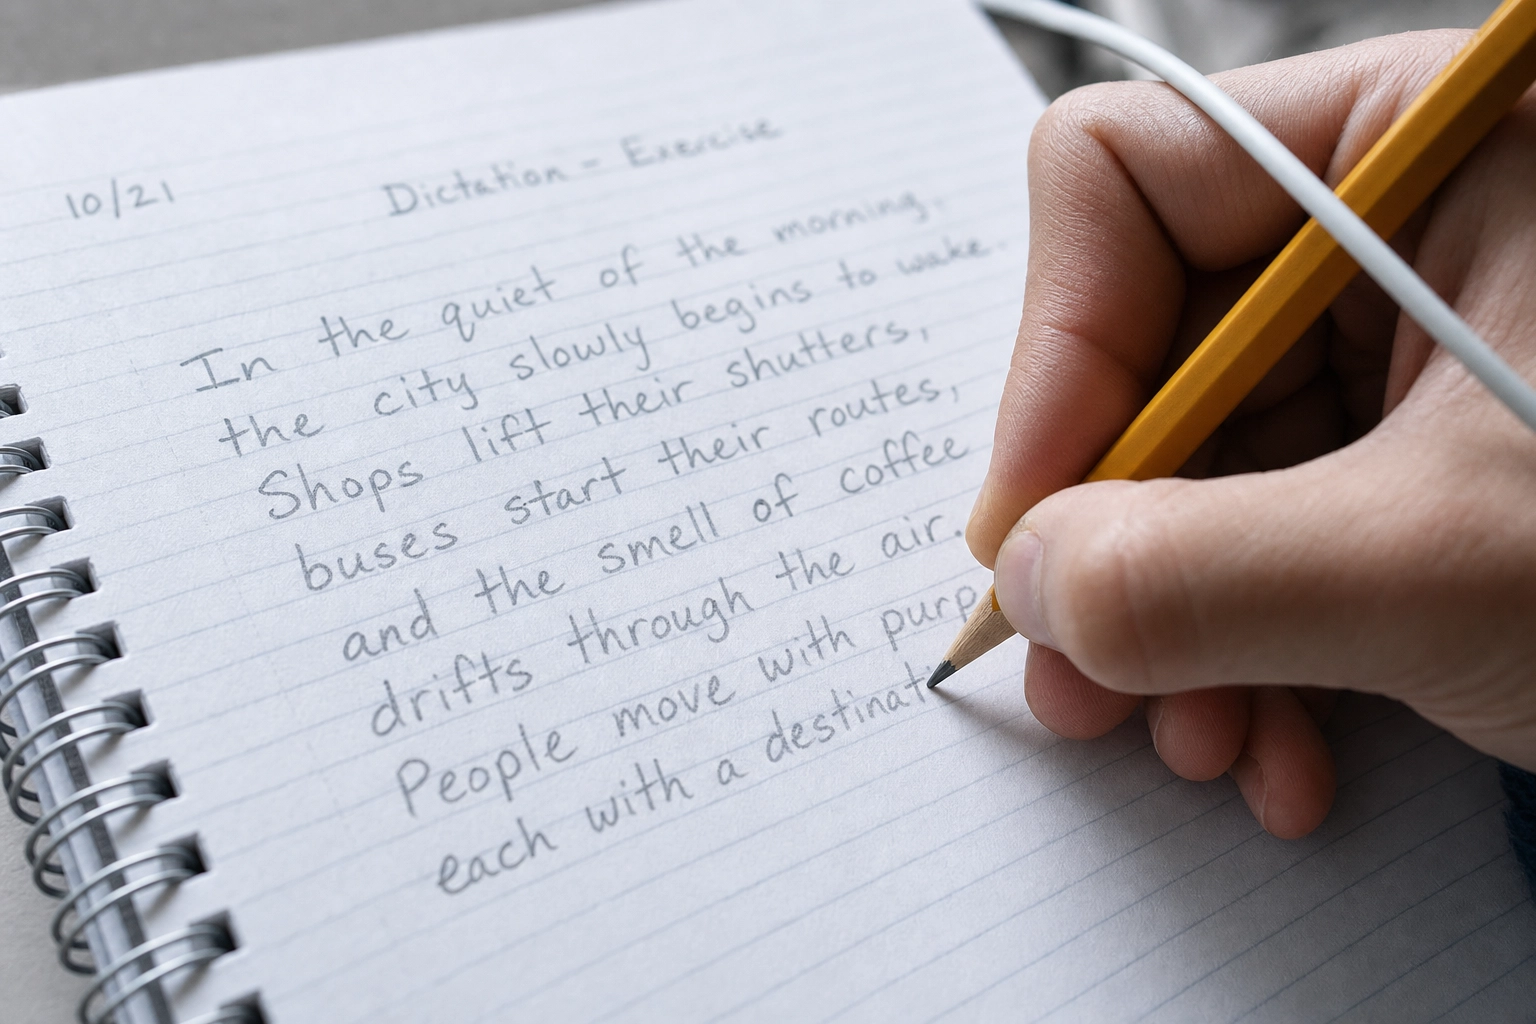 10/21 Dictation - Exercise
In the quiet of the morning,
the city slowly begins to wake.
Shops lift their shutters,
buses start their routes,
and the smell of coffee
drifts through the air.
People move with purp
each with a destinati